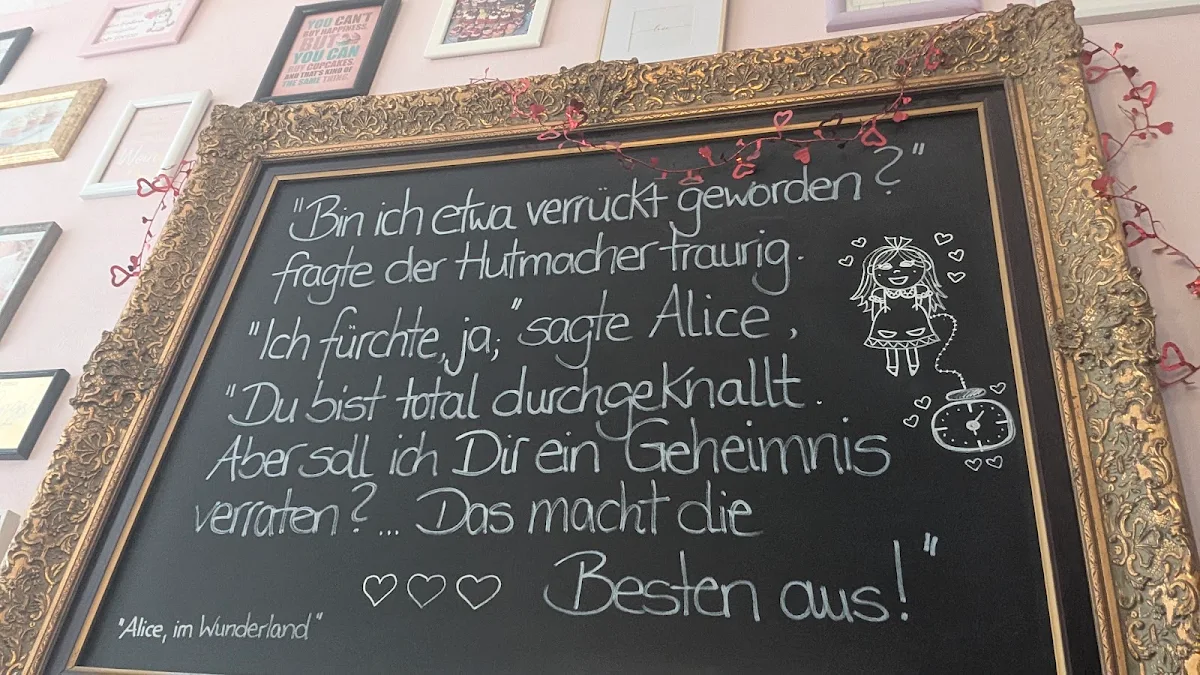 YOU CAN'T
BUY HAPPINESS,
BUT
YOU CAN
BUY CUPCAKES,
AND THAT'S KIND OF
THE SAME THING.
"Bin ich etwa verrückt geworden?"
fragte der Hutmacher traurig.
"Ich fürchte, ja;" sagte Alice,
"Du bist total durchgeknallt.
Aber soll ich Dir ein Geheimnis
verraten?... Das macht die
Besten aus!"
"Alice, im Wunderland"